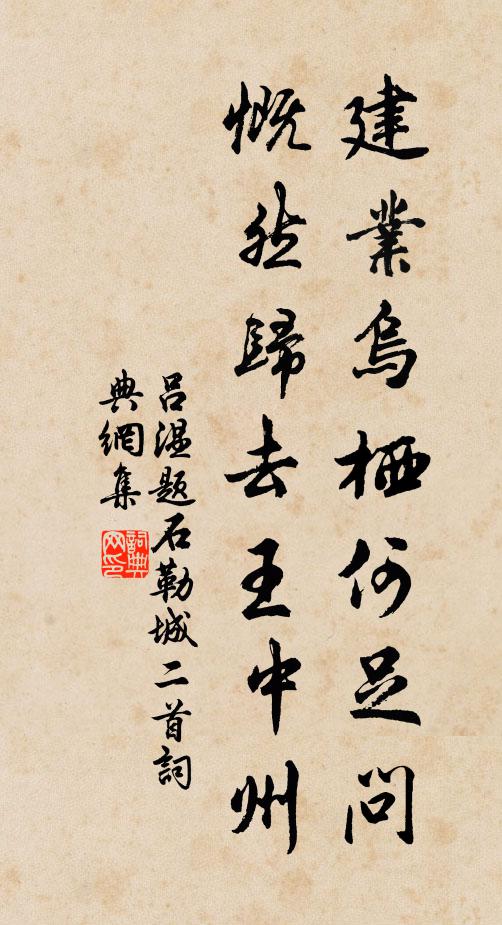 建業烏栖何足問
慨然歸去王中州
吕温题石勒城二首詞
典網集
詞典
网印